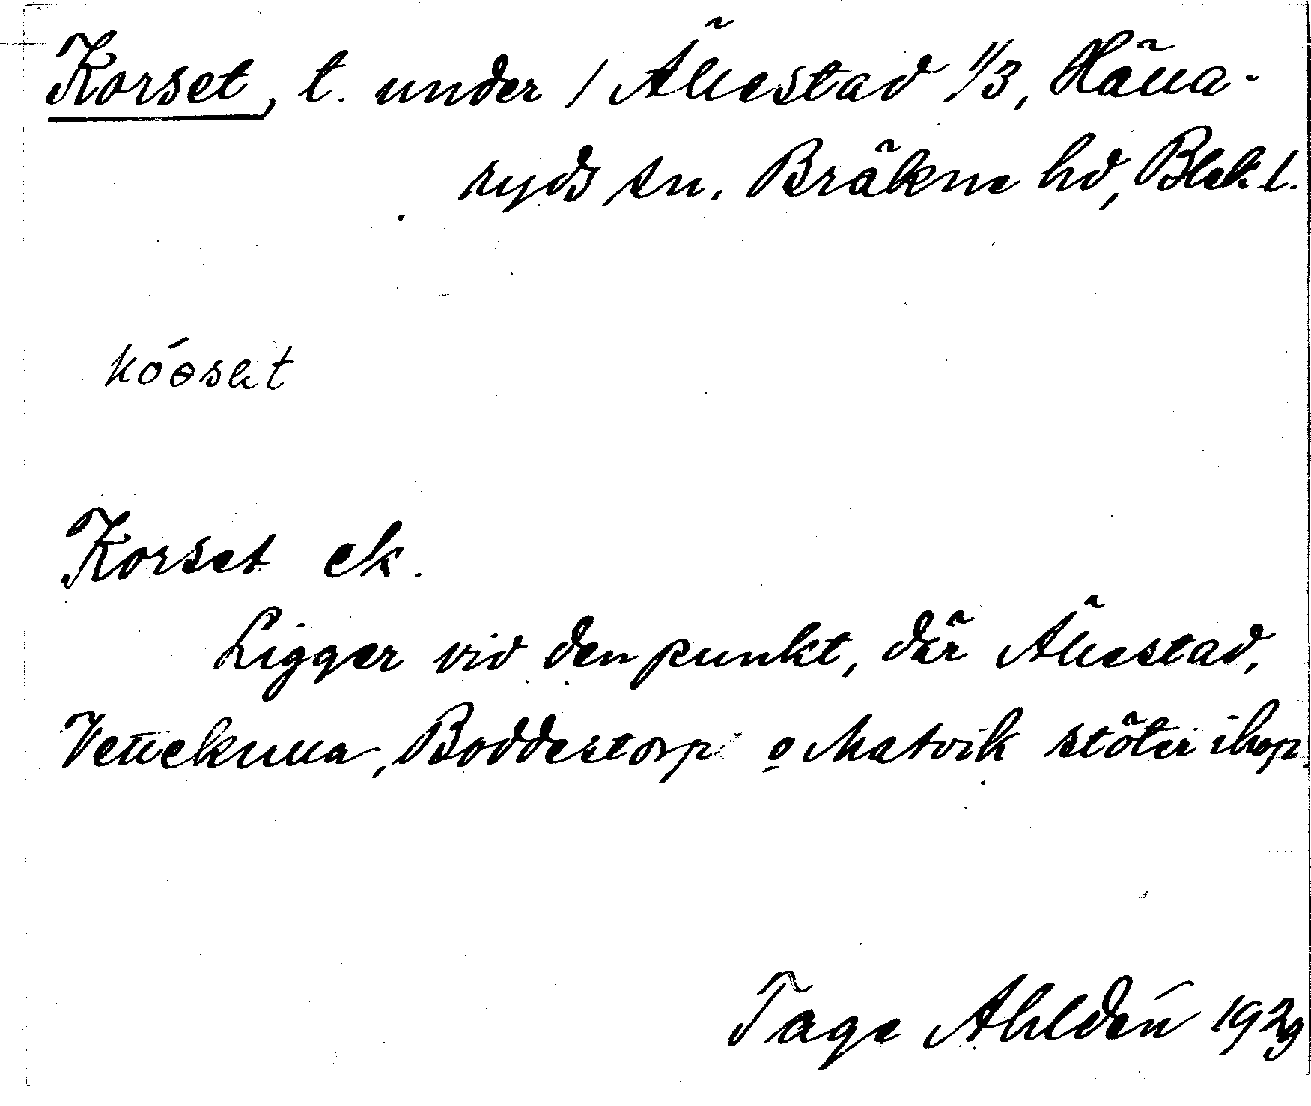 Korset, t. under 1 Ällestad 1/3, Hälla-
ryds sn. Bräkne hd, Blek. l.
kóɵset
Korset ek.
Ligger vid den punkt, där Ällestad,
Vettekulla, Boddestorp o Matvik stöter ihop.
Tage Ahldén 1929